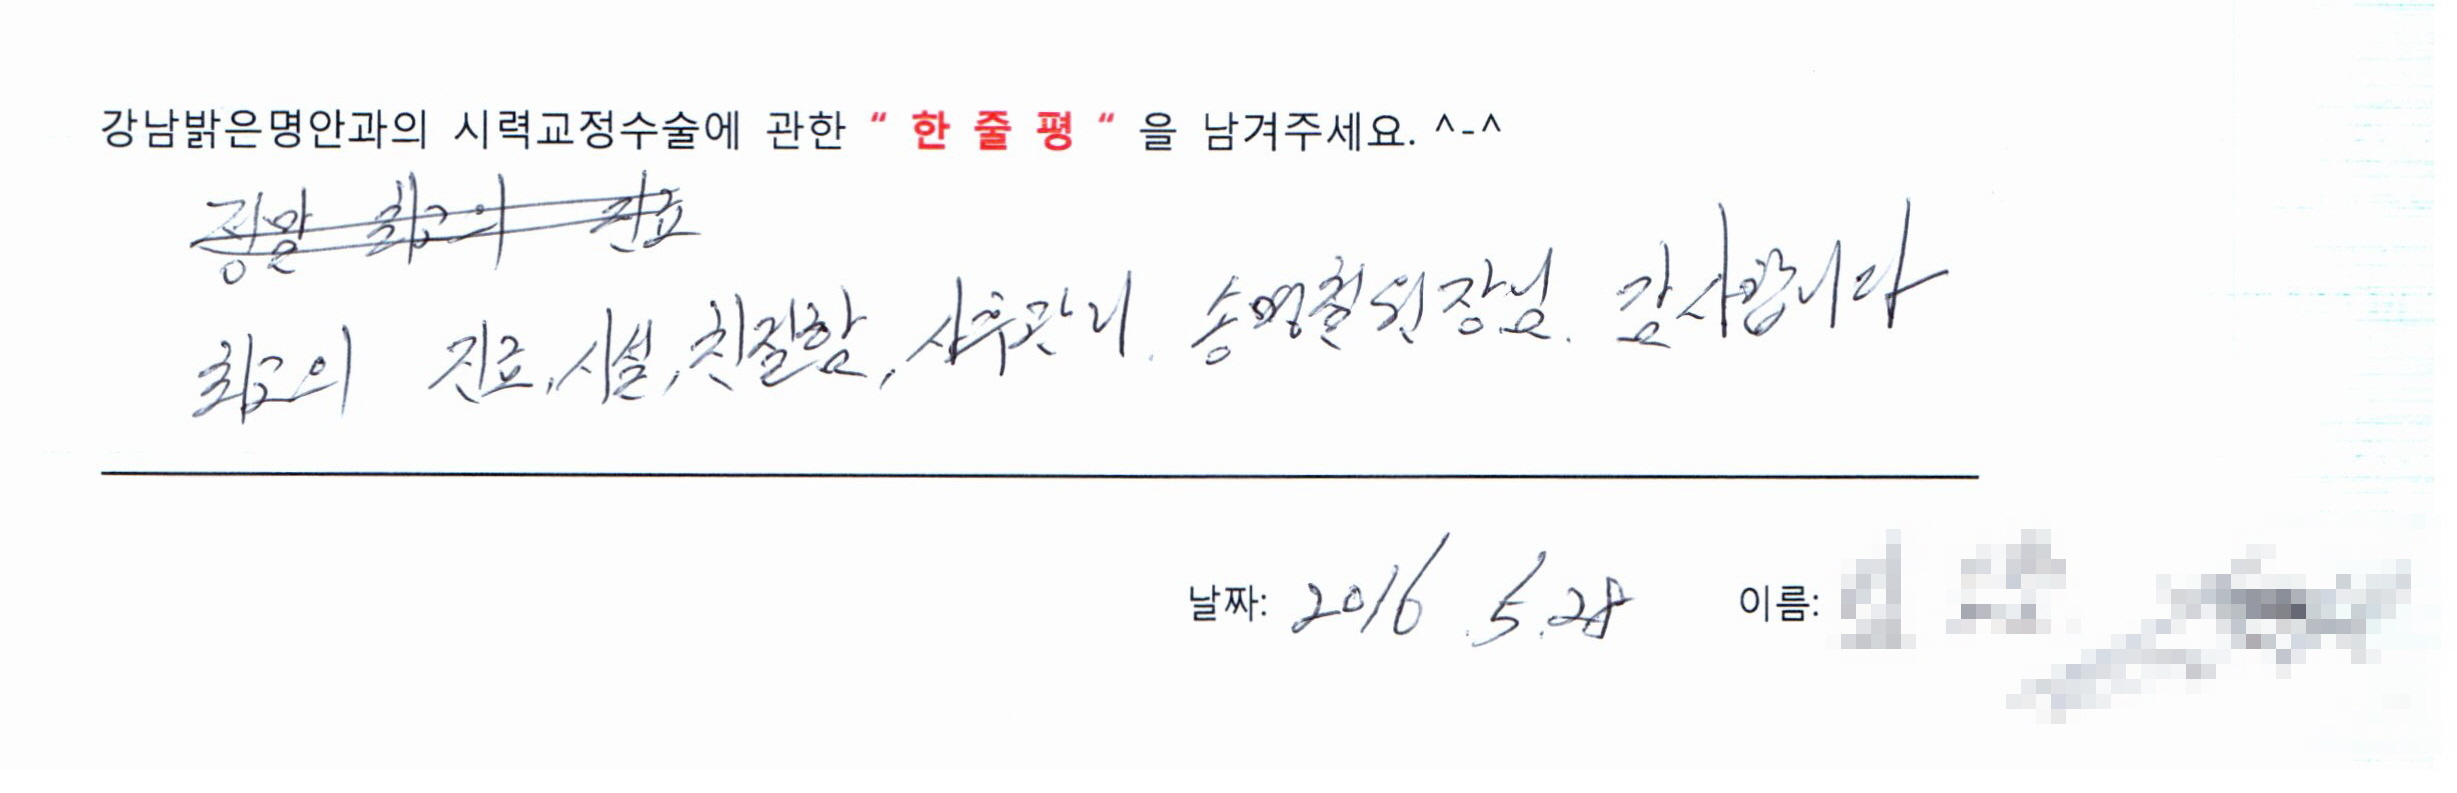 강남밝은명안과의 시력교정수술에 관한 “ 한 줄 평 “ 을 남겨주세요. ^-^
정말 최고의 진료
최고의 진료, 시설, 친절함, 사후관리. 송명철원장님. 감사합니다
날짜: 2016. 5. 28 이름: